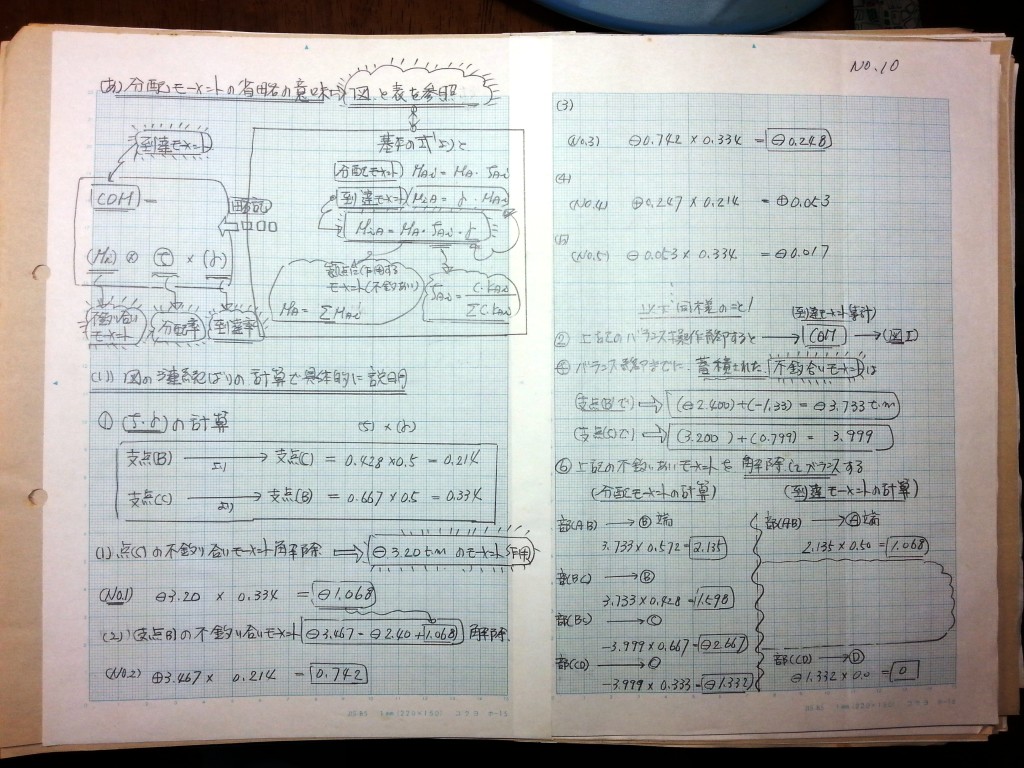 (あ) 分配モーメントの省略の意味⇒ 図と表を参照
到達モーメント
COM
(M) ⊗ τ × (γ)
不釣り合い モーメント
分配率
到達率
基本の式より
分配モーメント
到達モーメント
支点に作用する
モーメント(不釣あい)
(1) 図の連続ばりの計算で具体的に説明
① (τ.γ)の計算
(τ) × (γ)
支点(B) より → 支点(C) = 0.428 × 0.5 = 0.214
支点(C) より → 支点(B) = 0.667 × 0.5 = 0.334
(1) 点(C)の不釣り合いモーメント解除 ⇒ ⊖3.20 t.m のモーメント作用
(No.1) ⊖3.20 × 0.334 = ⊖1.068
(2) (支点B)の不釣り合いモーメント ⊖3.467 = ⊖2.40 + 1.068 解除
(No.2) ⊕3.467 × 0.214 = 0.742
2mm 1mm (220×160) コクヨ ホ-15
No.10
(3)
(No.3) ⊖0.742 × 0.334 = ⊖0.248
(4)
(No.4) ⊕0.247 × 0.214 = ⊕0.053
(5)
(No.5) ⊖0.053 × 0.334 = ⊖0.017
以下同様のこと!
(到達モーメント集計)
② 上記のバランス操作 すると → COM → (図I)
バランス までに、蓄積された 不釣合いモーメントは
支点(B)で ⇒ (⊖2.400)+(-1.33) = ⊖3.733 t.m
支点(C)で ⇒ (3.200) + (0.799) = 3.999
⑥ 上記の不釣りあいモーメントを解除してバランスする
(分配モーメントの計算) (到達モーメントの計算)
部(AB) → Ⓑ端
3.733 × 0.572 = 2.135
部(BC) → Ⓑ
3.733 × 0.428 = 1.598
部(BC) → Ⓒ
-3.999 × 0.667 = ⊖2.667
部(CD) → Ⓒ
-3.999 × 0.333 = ⊖1.332
部(AB) → Ⓐ端
2.135 × 0.50 = 1.068
部(CD) → Ⓓ
⊖1.332 × 0.0 = 0
1mm (220×160) コクヨ ホ-15